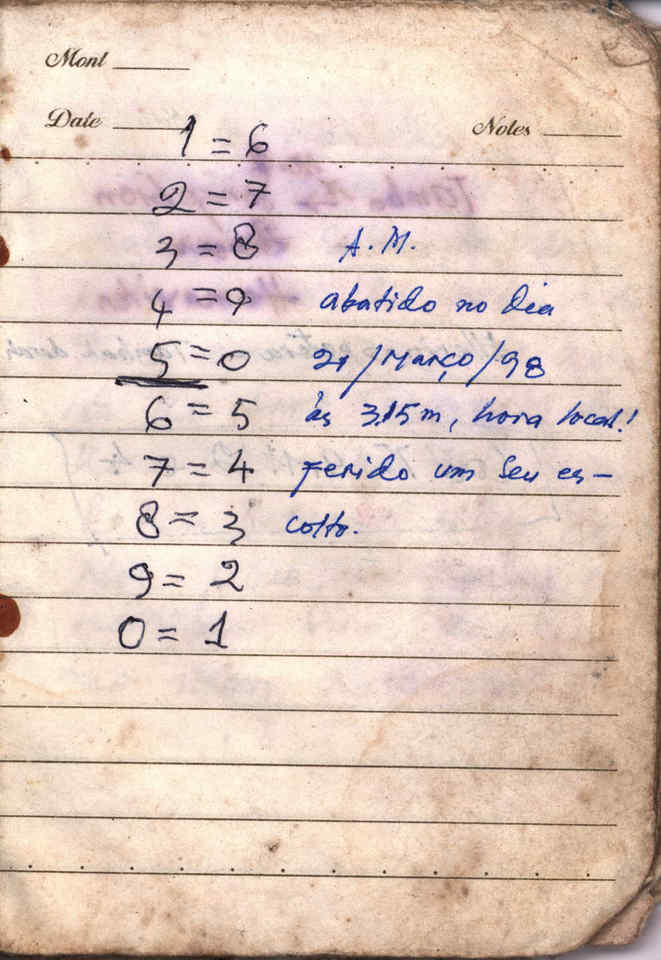 Mont
Date
Notes
1 = 6
2 = 7
3 = 8
4 = 9
5 = 0
6 = 5
7 = 4
8 = 3
9 = 2
0 = 1
A.M.
abatido no dia
21/Março/98
às 3,15m, hora local!
ferido um seu es-
colto.